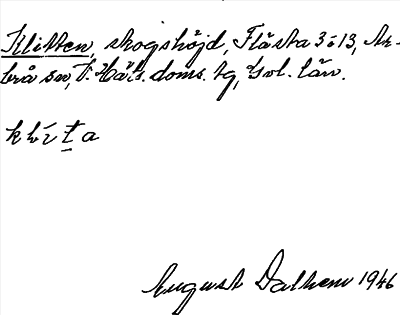 Klitten, skogshöjd, Flästa 3:13, Ar-
brå sn, V. Häls. doms. tg, Gvl. län.
klita
August Dalhem 1946